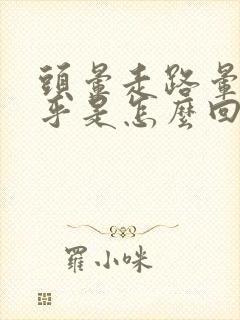 頭暈走路暈
乎是怎麼回
羅小咪